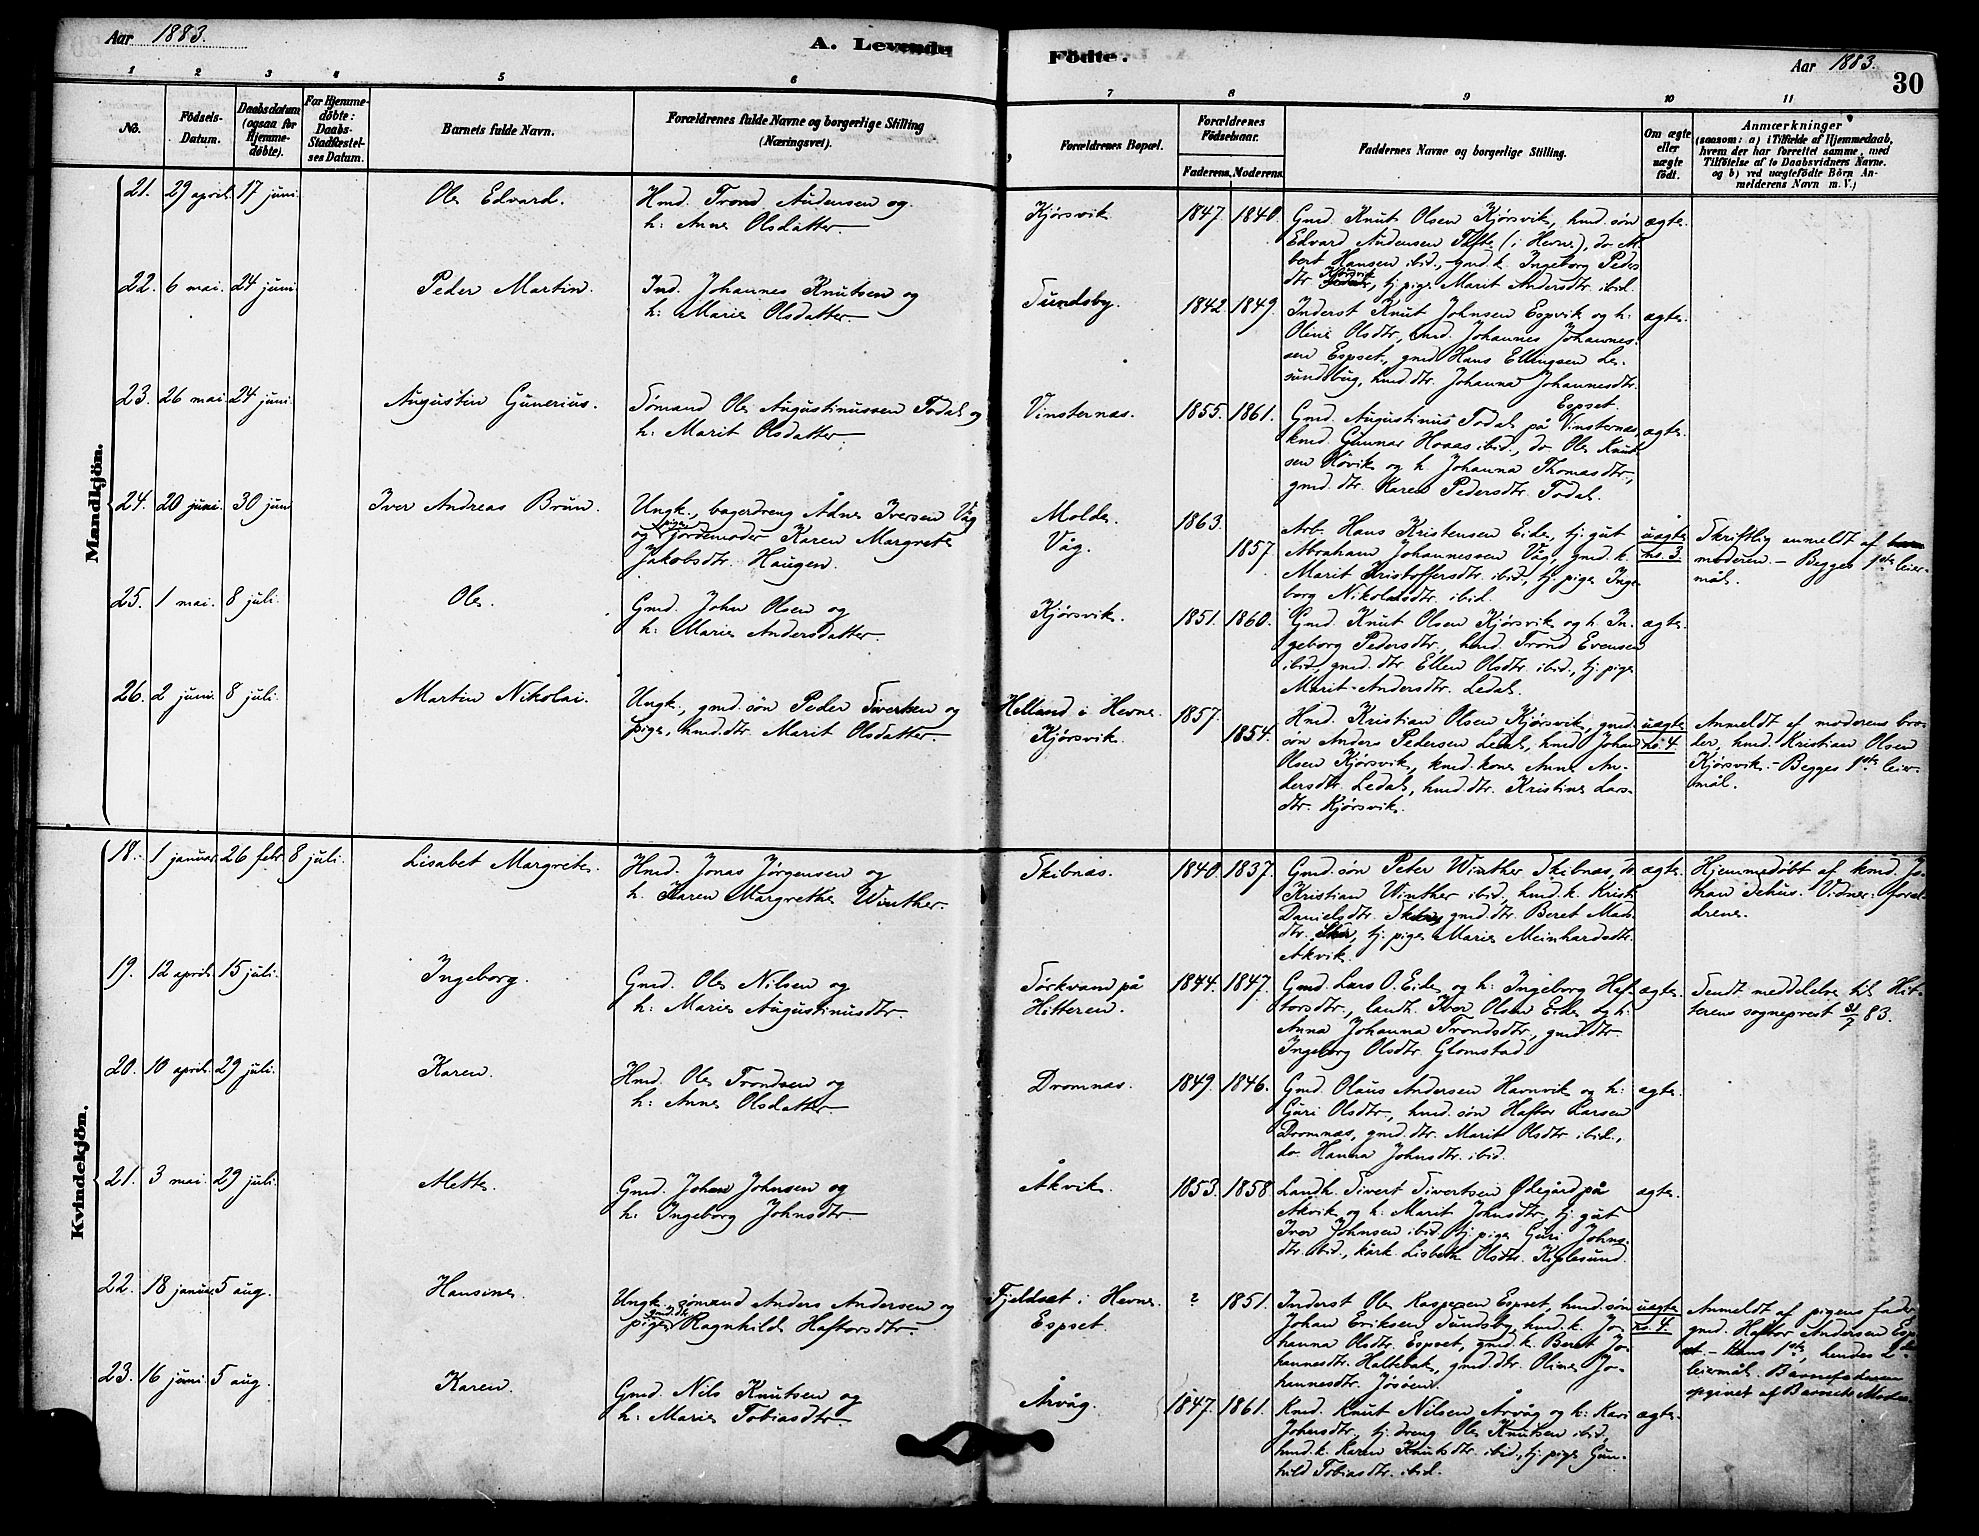 Aar 1883.
A. Levende
Födte.
Aar 1883.
30
1 2 3 4 5 6 7 8 9 10 11
No.
Födsels-
Datum.
Daabsdatum
(ogsaa for
Hjemme-
döbte).
For Hjemme-
döbte:
Daabs-
Stadfæstel-
ses Datum.
Barnets fulde Navn.
Forældrenes fulde Navne og borgerlige Stilling
(Næringsvei).
Forældrenes Bopæl.
Forældrenes
Födselsaar.
Faderens. Moderens.
Faddernes Navne og borgerlige Stilling.
Om ægte
eller
uægte
födt.
Anmærkninger
(saasom: a) i Tilfælde af Hjemmedaab,
hvem der har forrettet samme, med
Tilföielse af to Daabsvidners Navne.
og b) ved uægtefödte Börn An-
melderens Navn m. V.)
Mandkjön.
21. 29 april. 17 juni. Ole Edvard.
Hmd. Trond Audensen og
h: Anne Olsdatter.
Kjørsvik 1847. 1840.
Gmd. Knut Olsen Kjørsvik, hmd. søn
Edvard Audensen Tafte (i Hevne), do Al-
bert Hansen ibid., gmd. k. Ingeborg Peders
dtr Kjørsvik, tj. pige Marit Andersdtr. ibid.
ægte.
22. 6 mai. 24 juni. Peder Martin.
Ind. Johannes Knutsen og
h: Marie Olsdatter.
Sundsby. 1842. 1849.
Inderst Knut Johnsen Espvik og h:
Oline Olsdtr., hmd. Johannes Johannes-
sen Espset, gmd Hans Ellingsen Le-
sundbug, hmd. dtr. Johanna Johannesdtr.
Espset.
ægte.
23. 26 mai. 24 juni. Augustin Gunerius.
Sømand Ole Augustinussen Todal og
h: Marit Olsdatter.
Vinsternas. 1855. 1861.
Gmd. Augustinus Todal på Vinsternas,
kmd. Gunnar Hoaas ibid., do Ole Knut-
sen Høvik og h. Johanna Thomasdtr.,
gmd. dtr. Karen Pedersdtr. Todal.
ægte.
24. 20 juni. 30 juni Iver Andreas Brun.
Ungk., bagerdreng Ådne Iversen Våg
og pige, jordemoder Karen Margrete
Jakobsdtr. Haugen.
Molde.
Våg.
1863.
1857.
Arb. Hans Kristensen Eide, tj. gut
Abraham Johannessen Våg, gmd. k.
Marit Kristoffersdtr. ibid., tj. pige Inge-
borg Nikolaisdtr. ibid.
uægte
no. 3.
Skriftlig anmeldt af
moderen. – Begges 1ste leier-
mål.
25. 1 mai. 8 juli. Ole.
Gmd. John Olsen og
h: Marie Andersdatter.
Kjørsvik. 1851. 1860.
Gmd. Knut Olsen Kjørsvik og h. In-
geborg Pedersdtr., hmd. Trond Evensen
ibid., gmd. dtr. Ellen Olsdtr. ibid., tj. pige
Marit Andersdtr. Ledal.
ægte.
26. 2 juni. 8 juli. Martin Nikolai.
Ungk., gmd. søn Peder Sivertsen og
pige, hmd. dtr. Marit Olsdatter.
Helland i Hevne.
Kjørsvik.
1857.
1854.
Hmd. Kristian Olsen Kjørsvik, gmd.
søn Anders Pedersen Ledal, hmd. Johan
Olsen Kjørsvik, kmd. kone Anne An-
dersdtr. Ledal, hmd. dtr. Kristine Lars-
dtr. Kjørsvik.
uægte
no. 4.
Anmeldt af moderens bro-
der, hmd. Kristian Olsen
Kjørsvik. – Begges 1ste leier-
mål.
Kvindekjön.
18. 1 januar. 26 febr. 8 juli. Lisabet Margrete.
Hmd. Jonas Jørgensen og
h. Karen Margrethe Winther.
Skibnas. 1840. 1837.
Gmd. søn Peter Winther Skibnas, do
Kristian Winther ibid., hmd. k. Kirst.
Danielsdtr. gmd. dtr. Beret Mads
dtr. tj. pige Marie Meinhardsdtr.
Akvik.
ægte.
Hjemmedøbt af kmd. Jo-
han Schus. Vidner: foræl-
drene.
19. 12 april. 15 juli. Ingeborg.
Gmd. Ole Nilsen og
h: Marie Augustinusdtr.
Sørkvand på
Hitteren.
1844. 1847.
Gmd. Lars O. Eide og h: Ingeborg Haf-
torsdtr., landh. Iver Olsen Eide og h:
Anna Johanna Trondsdtr., gmd. dtr.
Ingeborg Olsdtr. Glomstad.
ægte.
Sendt meddelelse til Hit-
terens sogneprest 31/7 83.
20. 10 april. 29 juli. Karen.
Hmd. Ole Trondsen og
h: Anne Olsdatter
Dromnas. 1849. 1846.
Gmd. Olaus Andersen Havnvik og h:
Guri Olsdtr., hmd. søn Haftor Larsen
Dromnas, gmd. dtr. Marit Olsdtr. ibid.,
do. Hanna Johnsdtr. ibid.
ægte.
21. 3 mai. 29 juli. Mette.
Gmd. Johan Johnsen og
h: Ingeborg Johnsdtr.
Åkvik. 1853. 1858
Landh. Sivert Sivertsen Ødegård på
Akvik og h: Marit Johnsdtr., tj. gut
Iver Johnsen ibid., tj. pige Guri Johns-
dtr. ibid., kårk. Lisbeth Olsdtr. Kiplesund.
ægte.
22. 18 januar. 5 aug. Hansine.
Ungk. sømand Anders Andersen og
pige gmd. dtr. Ragnhild Haftorsdtr.
Fjeldset i Hevne.
Espset.
? 1851.
Inderst Ole Kaspersen Espset, hmd. søn
Johan Eriksen Sundsby, hmd. k. Jo-
hanna Olsdtr. Espset, gmd. k. Beret Jo-
hannesdtr. Haltebak, gmd. dtr. Oline Jo-
hannesdtr. Jøsøen.
uægte
no. 4.
Anmeldt af pigens fader
gmd. Haftor Andersen Esp-
set. – Hans 1ste, hendes 2det
leiermål. Barnefaderen
opgivet af Barnets Moder.
23. 16 juni. 5 aug. Karen.
Gmd. Nils Knutsen og
h: Marie Tobiasdtr.
Årvåg. 1847. 1861.
Kmd. Knut Nilsen Årvåg og h: Kari
Johnsdtr., tj. dreng Ole Knutsen ibid.,
hmd. k. Karen Knutsdtr. ibid., tj. pige Gun-
hild Tobiasdtr. ibid.
ægte.